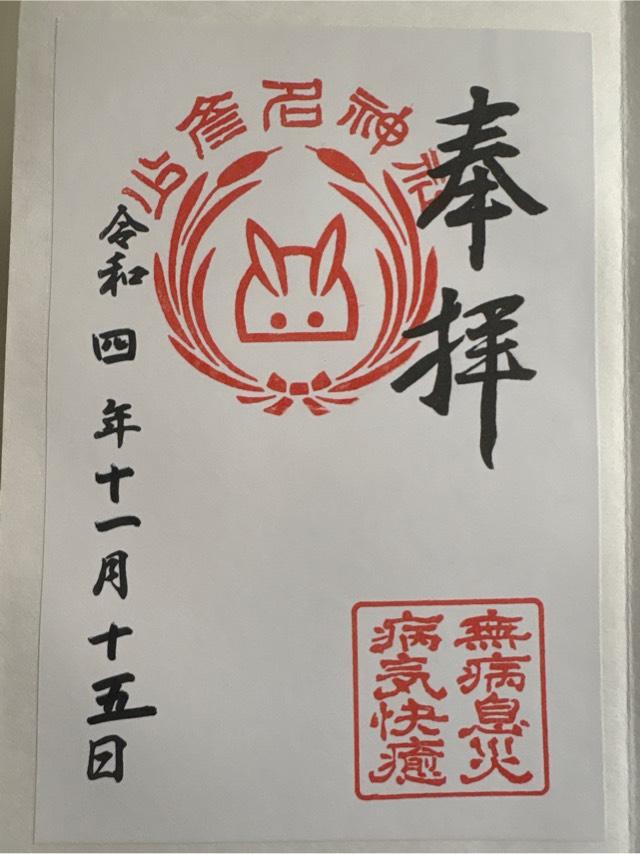 奉拝
少彦名神社
令和四年十一月十五日
無病息災
病気快癒